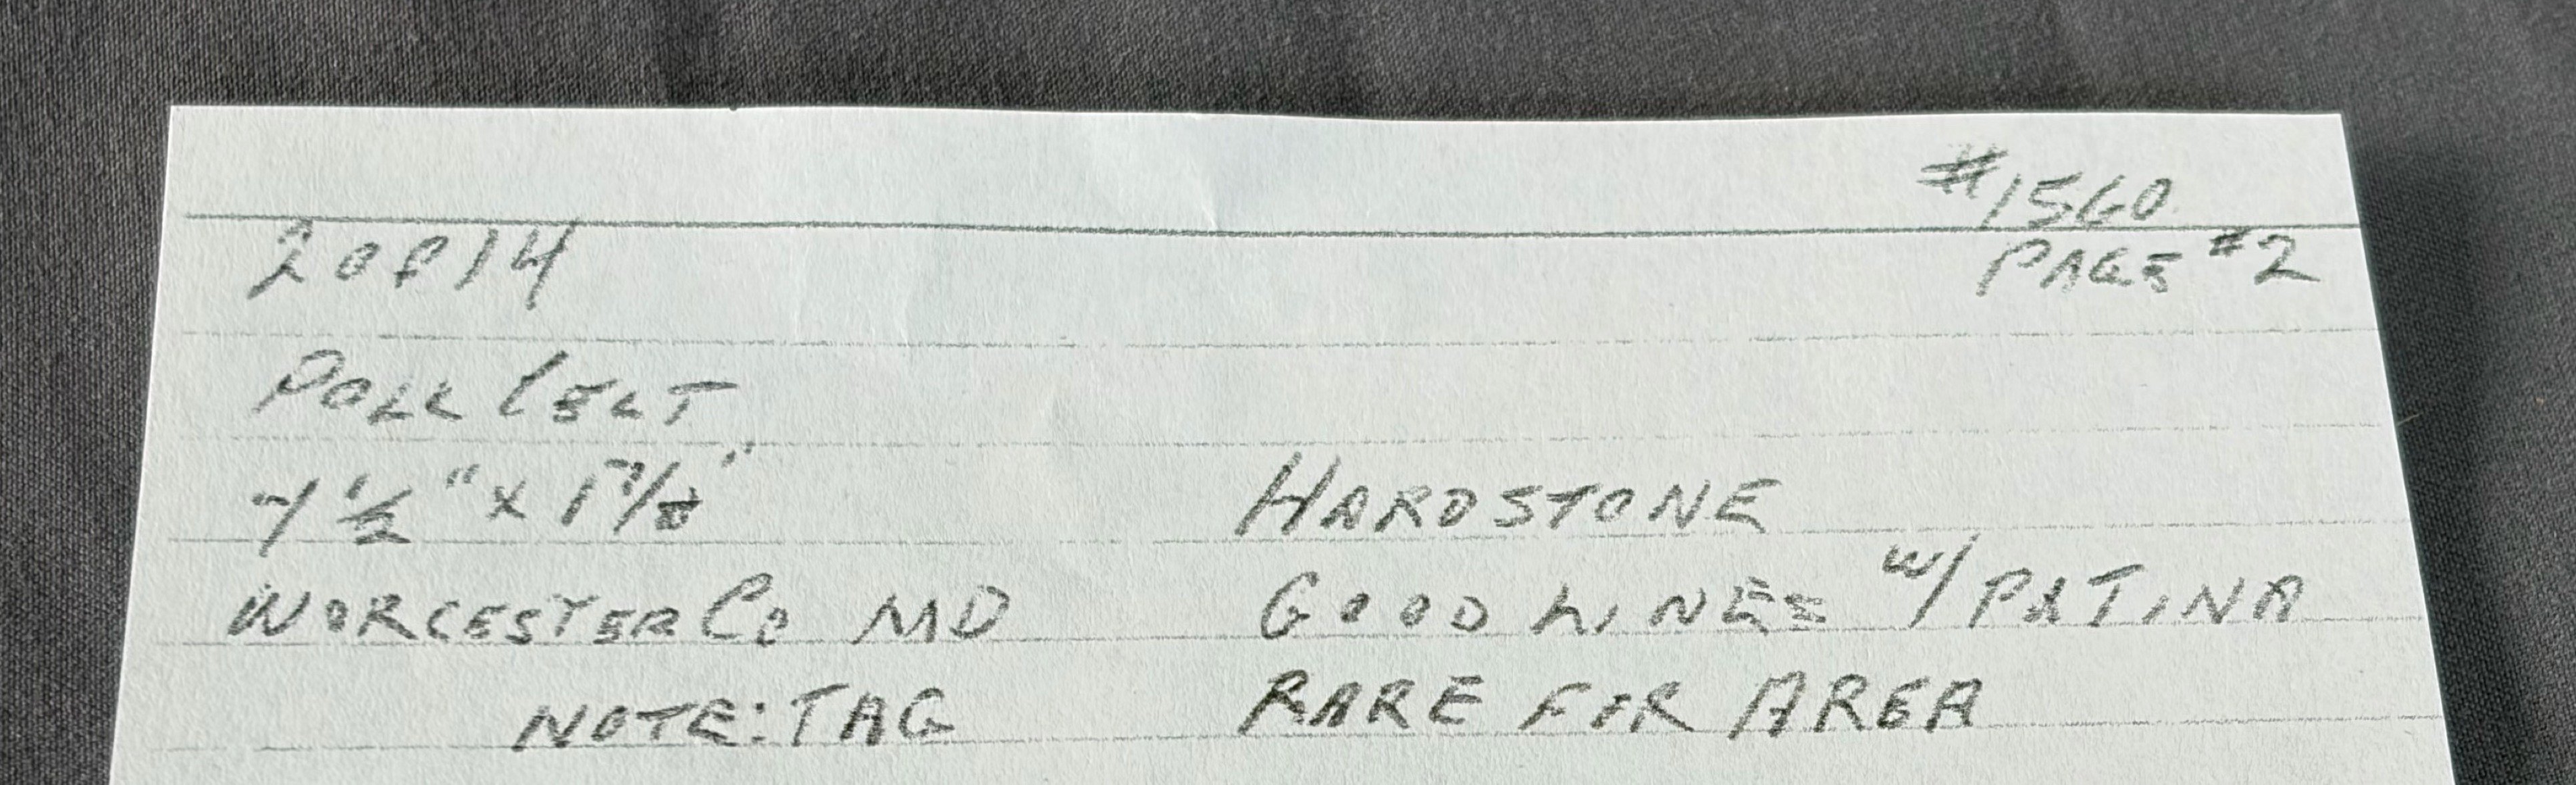 #1560
2 of 14 PAGE #2
POLL CELT
7 1/2" x 1 7/8" HARDSTONE
WORCESTER Co MD GOOD LINES w/ PATINA
NOTE: TAG RARE FOR AREA